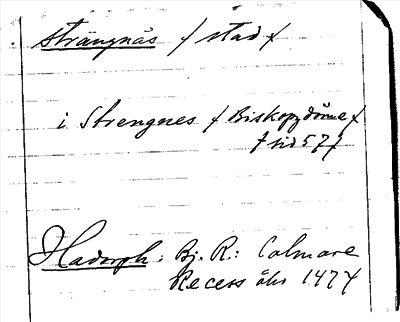 Strängnäs / stad /
i Strengnes / Biskopzdöme /
/ sid 57 /
Hadorph: Bj. R.: Calmare
Recess åhr 1474